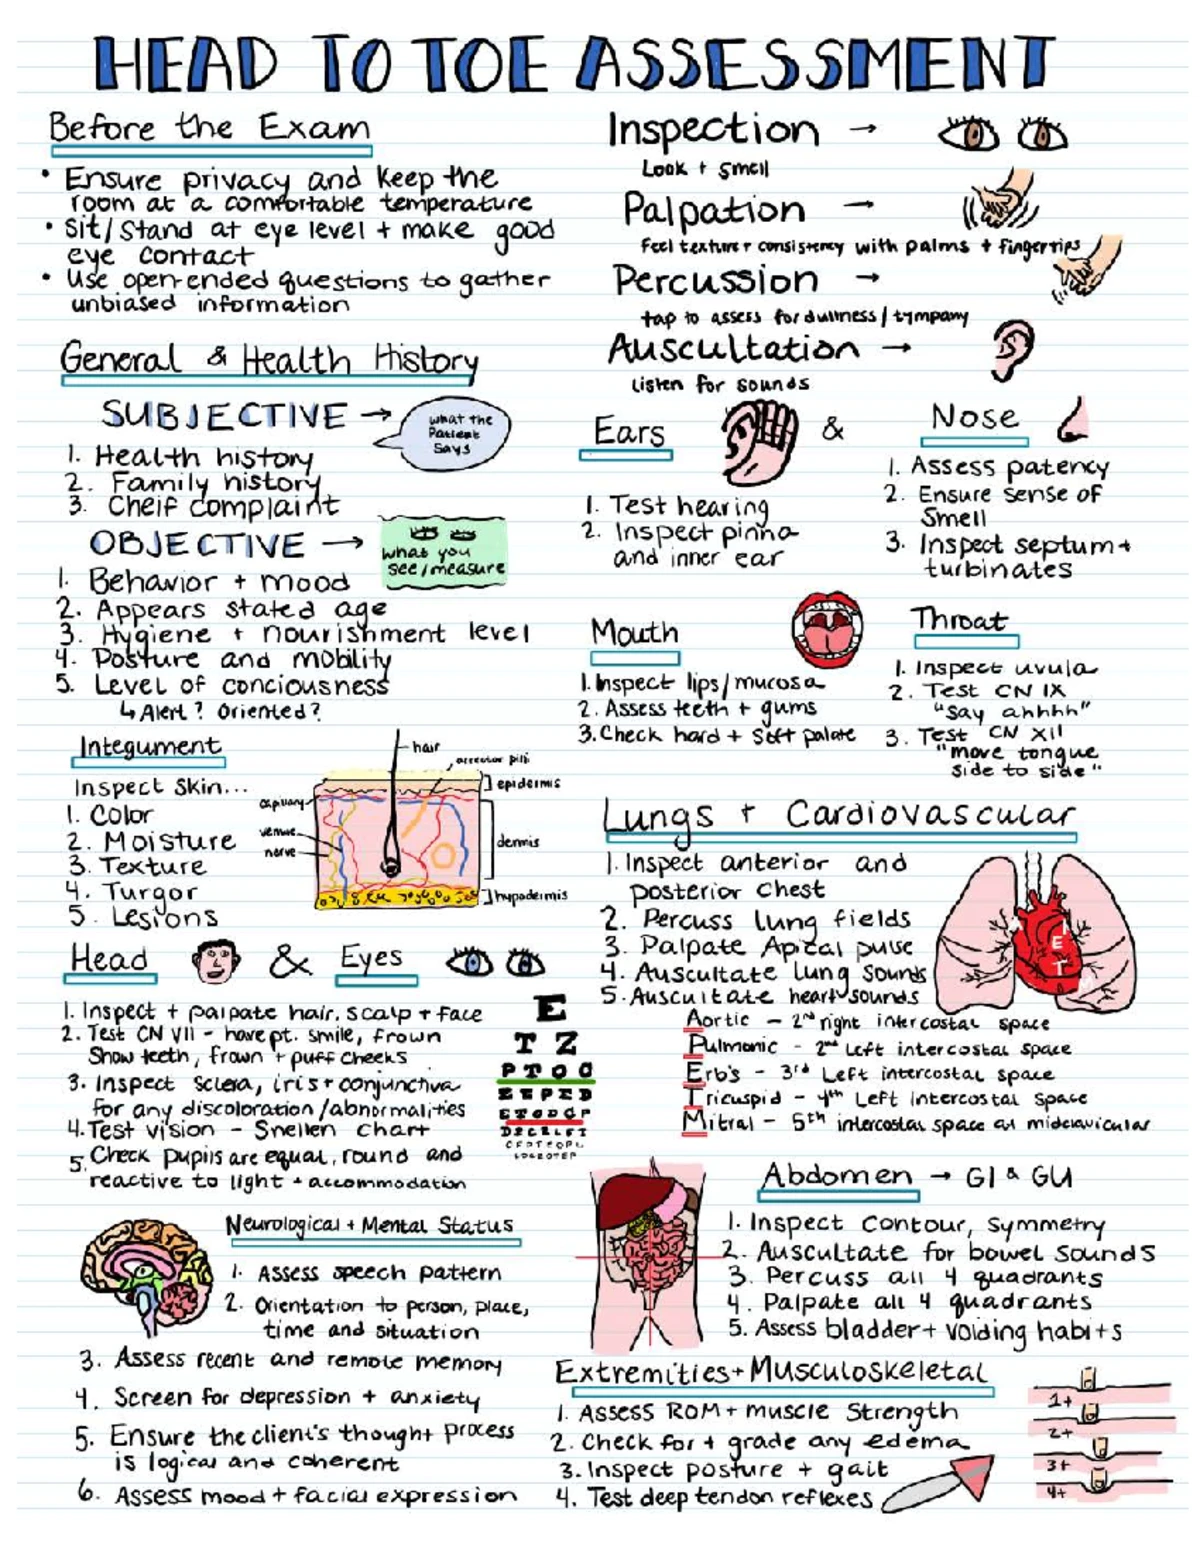 HEAD TO TOE ASSESSMENT
Before the Exam
• Ensure privacy and keep the
room at a comfortable temperature
• Sit/Stand at eye level + make good
eye contact
• Use open-ended questions to gather
unbiased information
General & Health History
SUBJECTIVE →
what the
Patient
Says
1. Health history
2. Family history
3. Cheif complaint
OBJECTIVE →
what you
see/measure
1. Behavior + mood
2. Appears stated age
3. Hygiene + nourishment level
4. Posture and mobility
5. Level of conciousness
↳ Alert? Oriented?
Integument
Inspect Skin...
1. Color
2. Moisture
3. Texture
4. Turgor
5. Lesions
hair
arrector pili
epidermis
capillary
venule
nerve
dermis
hypodermis
Head & Eyes
1. Inspect + palpate hair, scalp + face
2. Test CN VII - have pt. smile, frown
Show teeth, frown + puff cheeks
3. Inspect sclera, iris + conjunctiva
for any discoloration/abnormalities
4. Test vision - Snellen chart
5. Check pupils are equal, round and
reactive to light + accommodation
E
T Z
Neurological + Mental Status
1. Assess speech pattern
2. Orientation to person, place,
time and situation
3. Assess recent and remote memory
4. Screen for depression + anxiety
5. Ensure the client's thought process
is logical and coherent
6. Assess mood + facial expression
Inspection →
Look + smell
Palpation →
Feel texture + consistency with palms + fingertips
Percussion →
tap to assess for dullness/tympany
Auscultation →
Listen for sounds
Ears & Nose
1. Test hearing
2. Inspect pinna
and inner ear
1. Assess patency
2. Ensure sense of
Smell
3. Inspect septum +
turbinates
Mouth
1. Inspect lips/mucosa
2. Assess teeth + gums
3. Check hard + soft palate
Throat
1. Inspect uvula
2. Test CN IX
"Say ahhhh"
3. Test CN XII
"move tongue
side to side"
Lungs + Cardiovascular
1. Inspect anterior and
posterior chest
2. Percuss lung fields
3. Palpate Apical pulse
4. Auscultate lung sounds
5. Auscultate heart sounds
E
T
Aortic - 2nd right intercostal space
Pulmonic - 2nd Left intercostal space
Erb's - 3rd Left intercostal space
Tricuspid - 4th Left intercostal space
Mitral - 5th intercostal space at midclavicular
Abdomen → GI & GU
1. Inspect contour, symmetry
2. Auscultate for bowel sounds
3. Percuss all 4 quadrants
4. Palpate all 4 quadrants
5. Assess bladder + voiding habits
Extremities + Musculoskeletal
1. Assess ROM + muscle strength
2. Check for + grade any edema
3. Inspect posture + gait
4. Test deep tendon reflexes
1+
2+
3+
4+